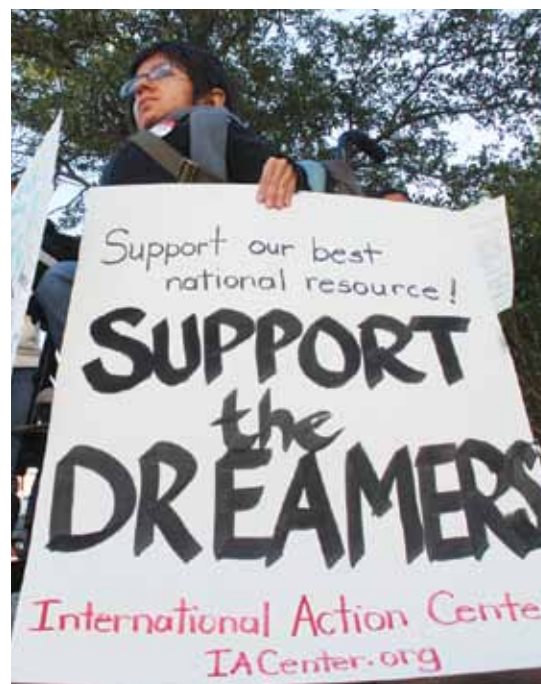 Support our best
national resource!
SUPPORT
the
DREAMERS
International Action Cente
IACenter.org